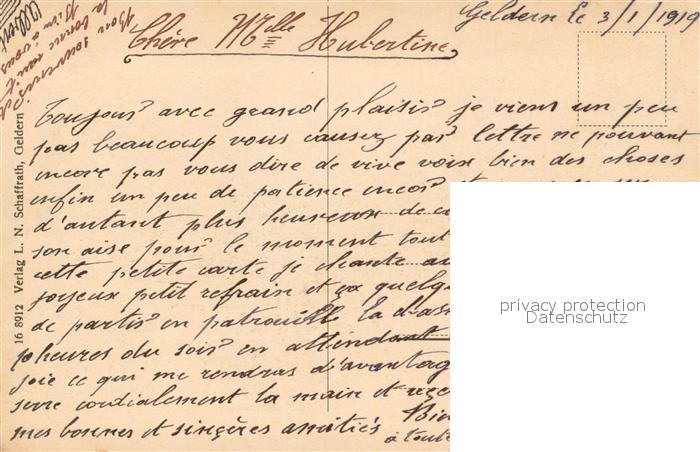 Geldern le 3/1/1919
Chère Mlle Hubertine,
Toujour avec grand plaisir je viens un peu
pas beaucoup vous causer par lettre ne pouvant
encore pas vous dire de vive voix bien des choses
enfin un peu de patience encor et
d'autant plus heureux de
son aise pour le moment tout
cette petite carte je chante
joyeux petit refrain et ça quelq
de partir en patrouille
10 heures du soir en attendant
joie ce qui me rendras d'avantag
serre cordialement la main et
mes bonnes et sincères amitiés Bien
à toute
souvenir
Bon
à vous
Albert
16 8912 Verlag L. N. Schaffrath, Geldern
privacy protection
Datenschutz